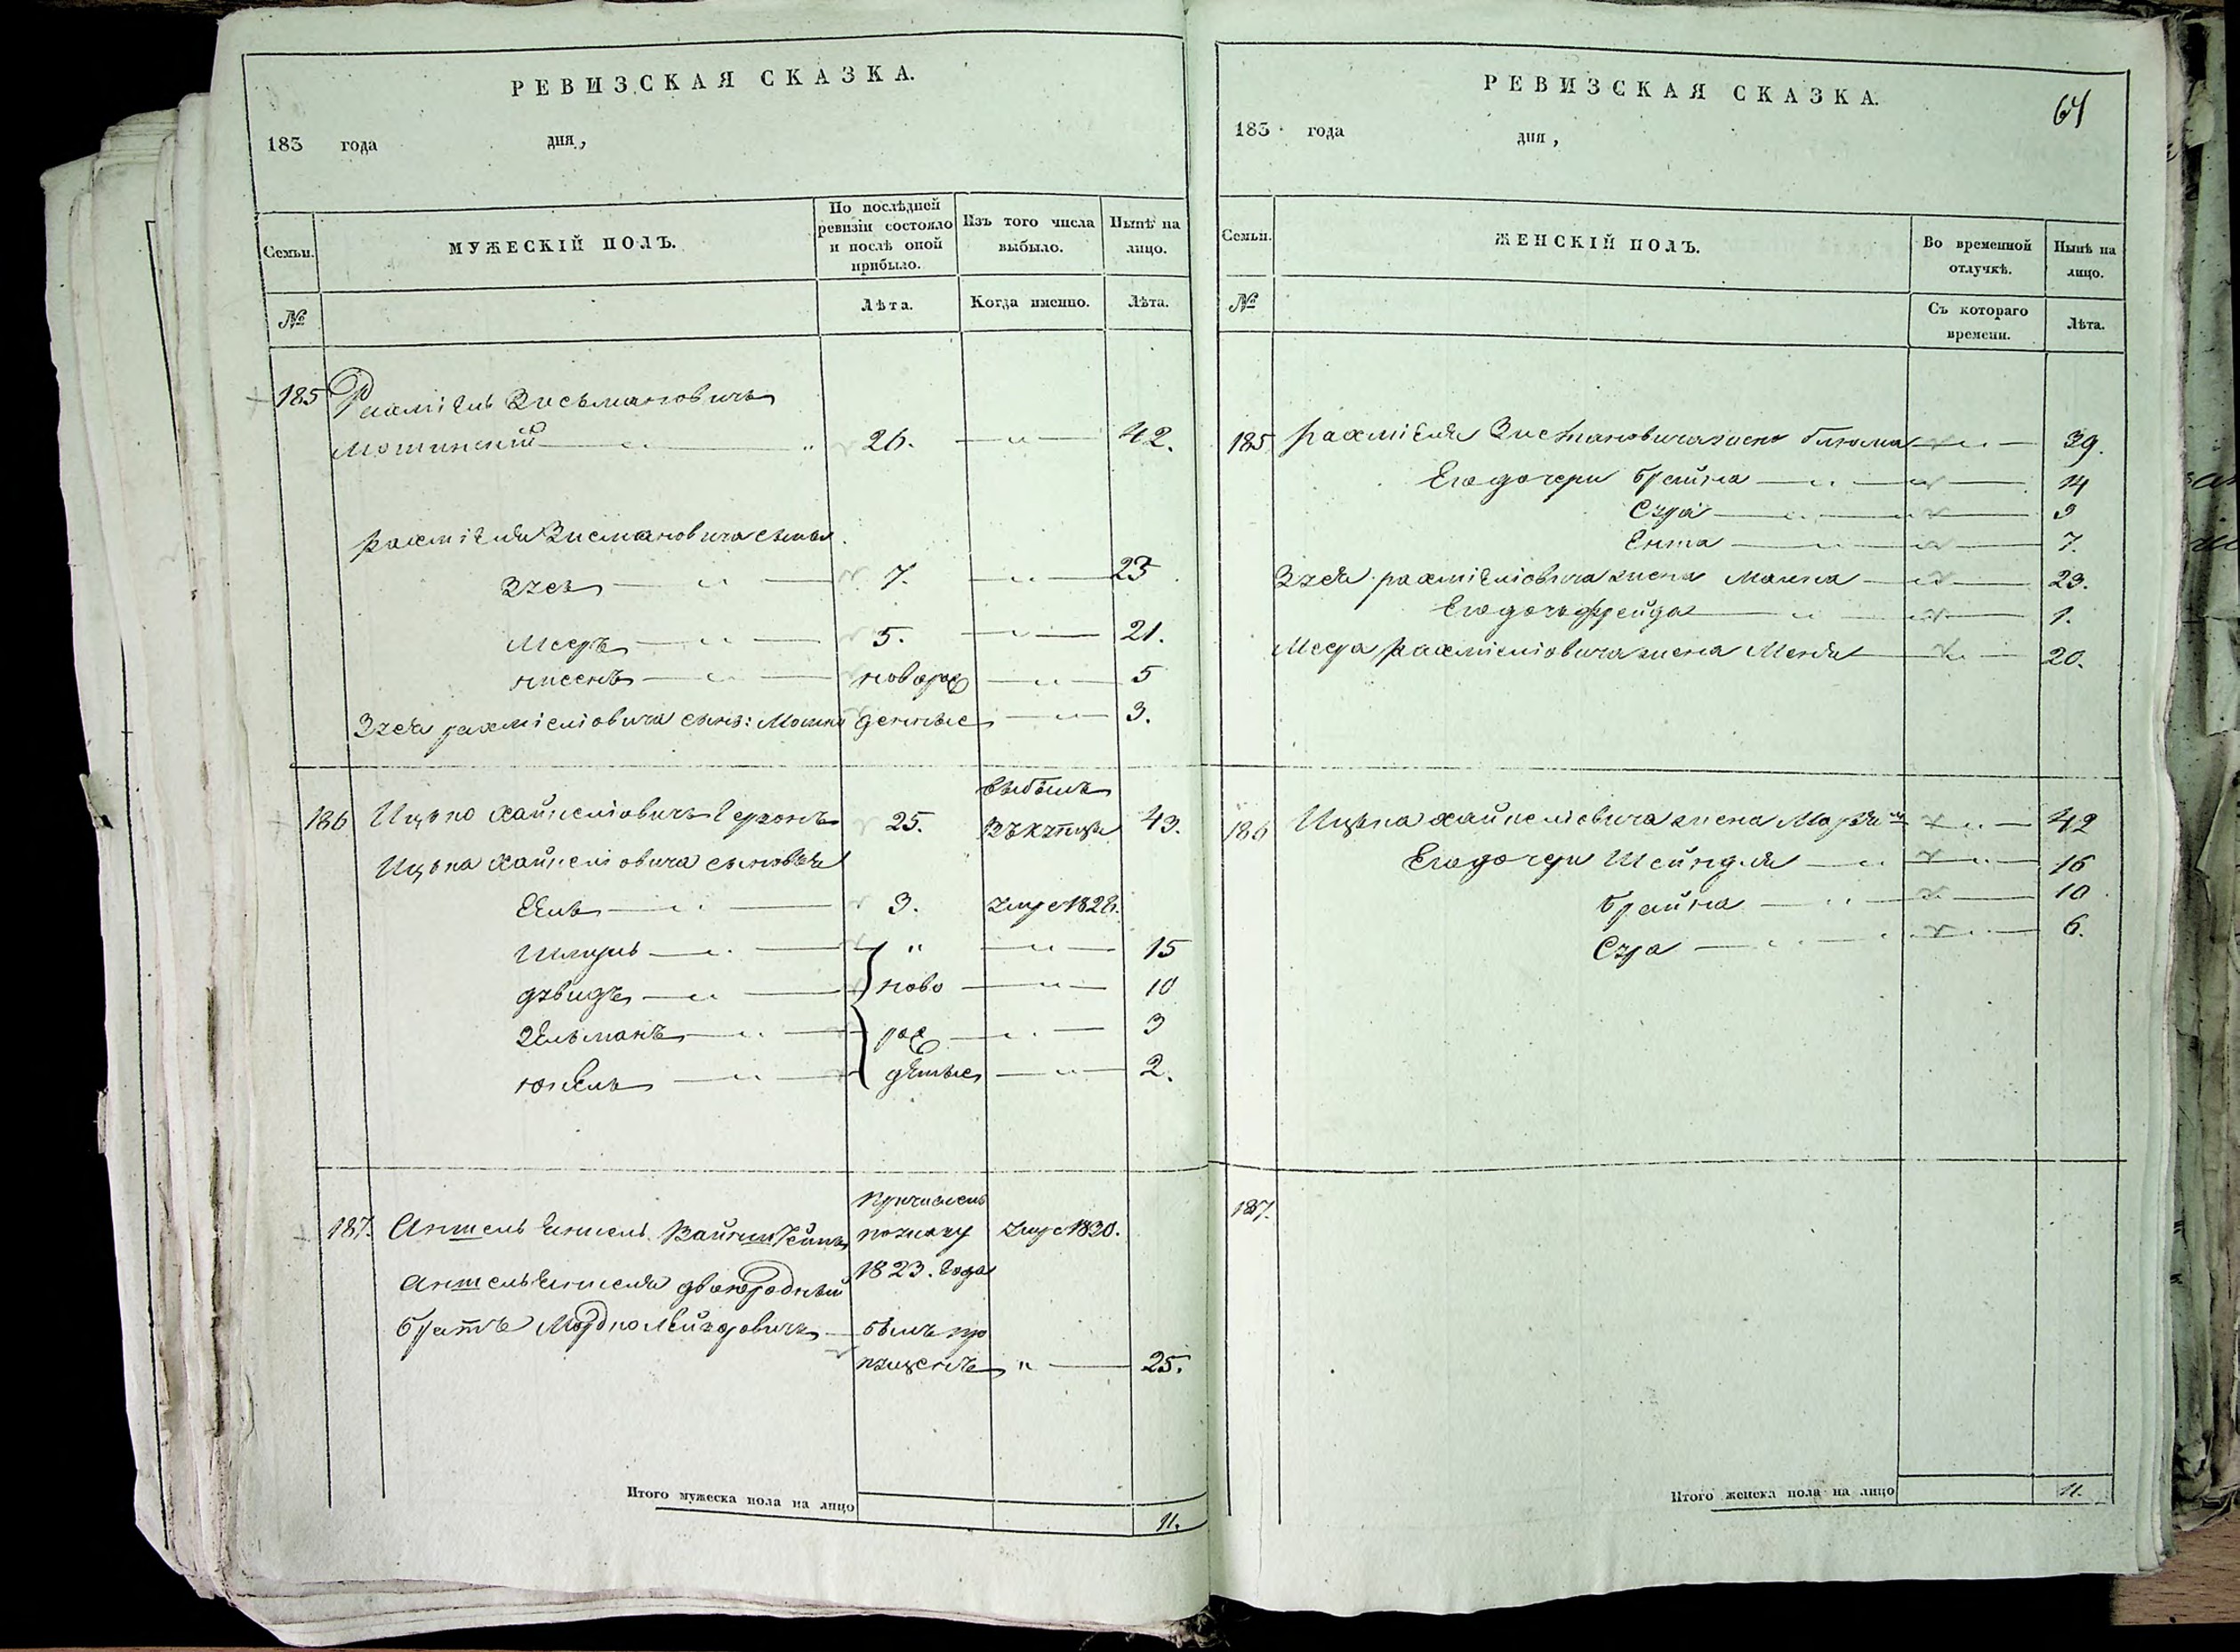 РЕВИЗСКАЯ СКАЗКА.
183 года дня,
Семьи.
МУЖЕСКІЙ ПОЛЪ.
По послѣдней ревизіи состояло и послѣ оной прибыло.
Изъ того числа выбыло.
Нынѣ на лицо.
№
Лѣта.
Когда именно.
Лѣта.
185 Рахміель Зисьмановичъ
Мошинскій 26. 42.
Рахміеля Зисмановича сыновья
7. 23
Мееръ 5. 21.
Нисенъ новорож 5
рахміеліовича сынъ: Мошко денные 3.
выбылъ
186 Ицько Хайкеліовичъ Герзонъ 25. 43.
Ицька Хайкеліовича сыновья
3. умре 182
Шмуль " 15
Давидъ ново 10
Зельманъ рож 3
Юкель денные 2.
причислен
187. Аншель 1823. Года умре 1830.
двоюродный
братъ Мордко былъ про
пущенъ " 25.
Итого мужеска пола на лицо 11.
РЕВИЗСКАЯ СКАЗКА.
64
183 года дня,
Семьи.
ЖЕНСКІЙ ПОЛЪ.
Во временной отлучкѣ.
Нынѣ на лицо.
№
Съ котораго времени.
Лѣта.
185 Рахміеля Зисмановича жена Блюма 39.
Его дочери Брейна 14
Сура 9
Ента 7.
рахміеліовича жена Малка 23.
Его дочь Фрейда 1.
Меера рахміеліовича жена Меня 20.
186 Ицька Хайкеліовича жена 42
Его дочери Шейндля 16
Брайна 10
Сура 6.
187.
Итого женска пола на лицо 11.